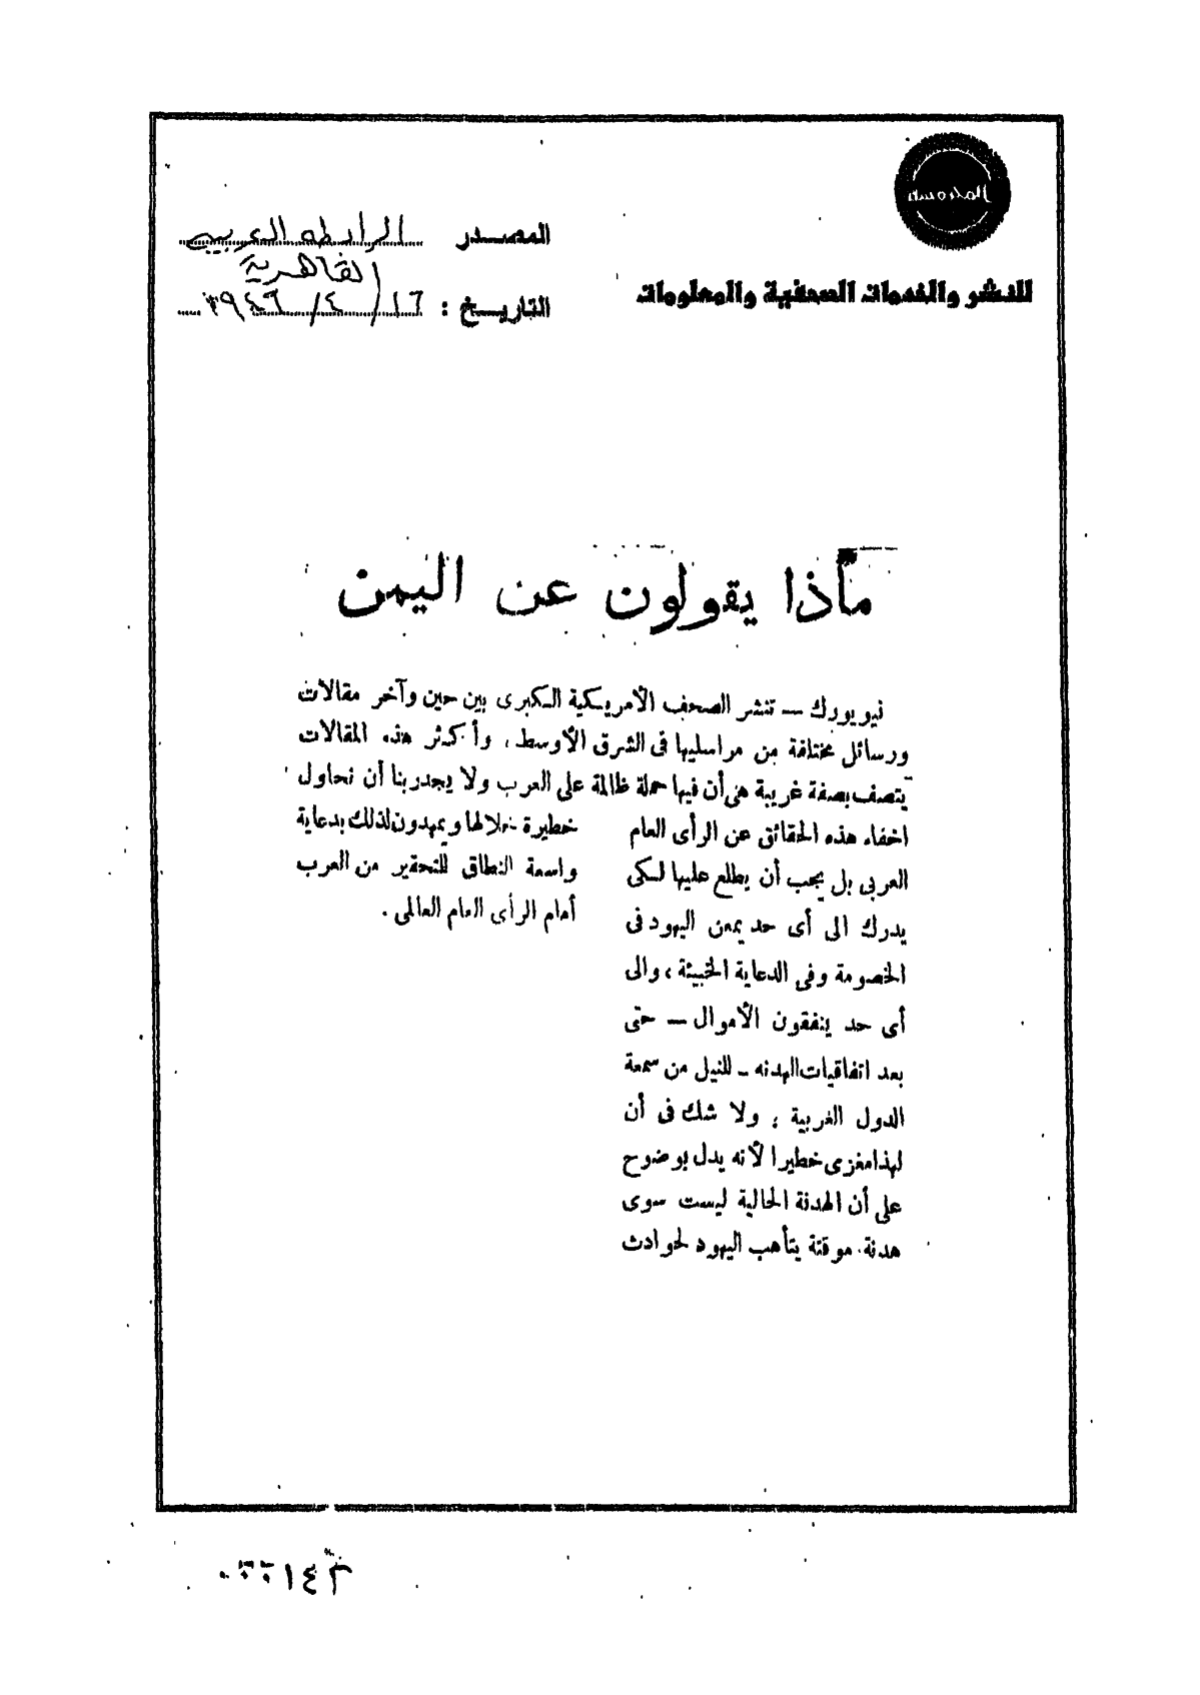 المصدر الرابطه العربيه
القاهرية
للنشر والخدمات الصحفية والمعلومات
التاريخ : ١٦/٤/١٩٤٦
ماذا يقولون عن اليمن
نيويورك — تنشر الصحف الأمريكية الكبرى بين حين وآخر مقالات
ورسائل مختلفة من مراسليها فى الشرق الأوسط ، وأكثر هذه المقالات
يتصف بصفة غريبة هى أن فيها حملة ظالمة على العرب ولا يجدر بنا أن نحاول
اخفاء هذه الحقائق عن الرأى العام
العربى بل يجب أن يطلع عليها لكى
يدرك الى أى حد يمعن اليهود فى
الخصومة وفى الدعاية الخبيثة ، والى
أى حد ينفقون الأموال — حتى
بعد اتفاقيات الهدنه — للنيل من سمعة
الدول العربية ، ولا شك فى أن
لهذا مغزى خطيرا لأنه يدل بوضوح
على أن الهدنة الحالية ليست سوى
هدنة موقتة يتأهب اليهود لحوادث
خطيرة خلالها ويمهدون لذلك بدعاية
واسعة النطاق للتحقير من العرب
أمام الرأى العام العالمى .